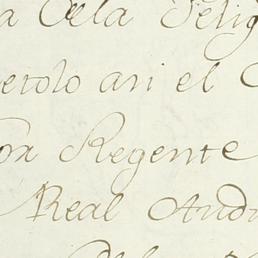 a de la Felig
etolo asi el
on Regente
Real Audi